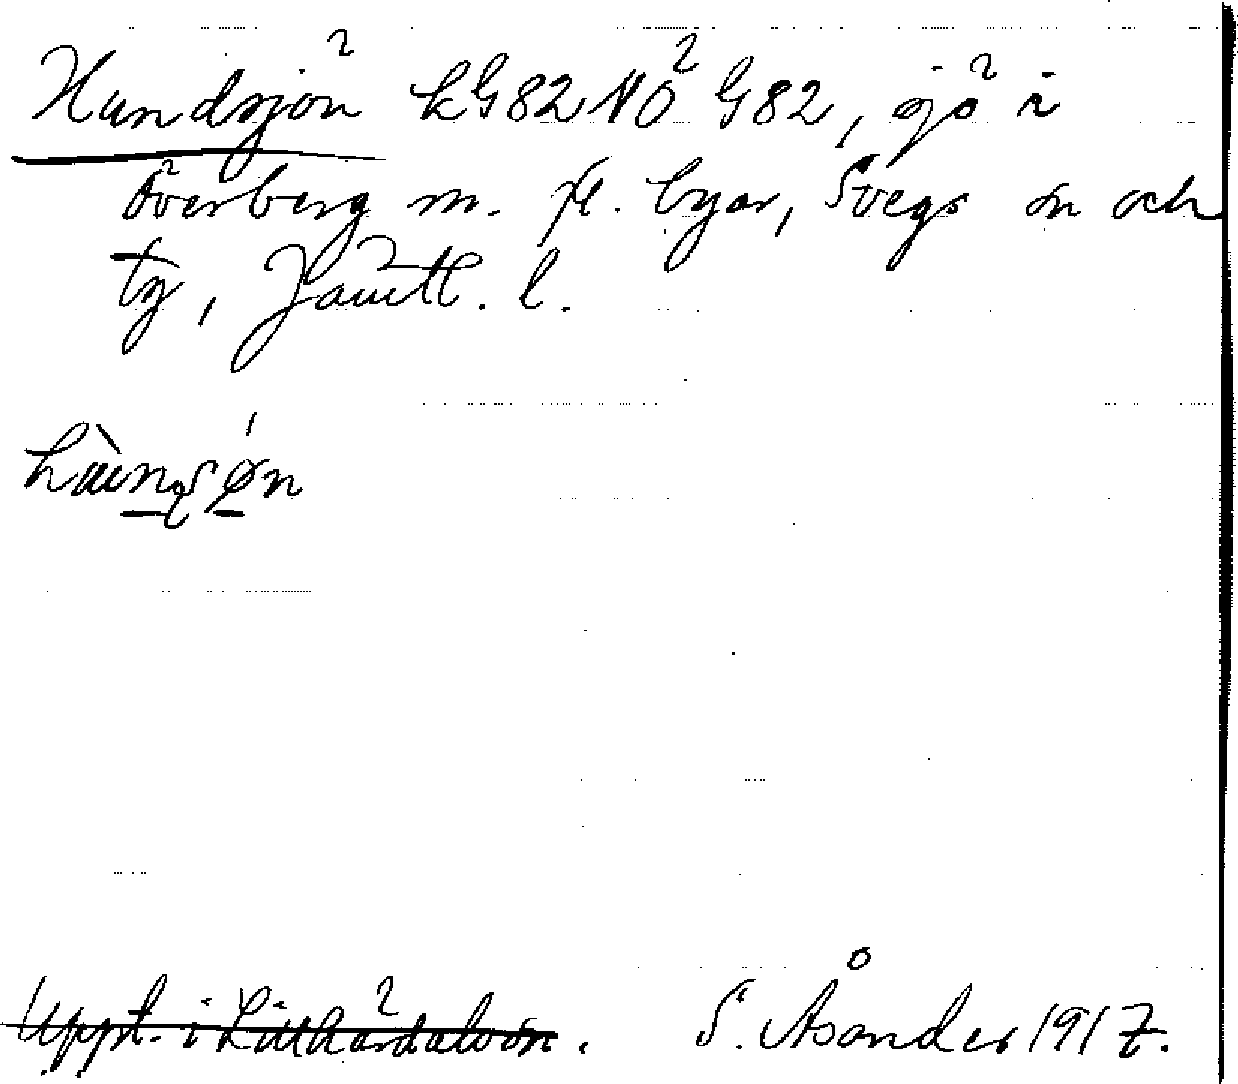 Hundsjön kG82NO G82, sjö i
Överberg m. fl. byar, Svegs sn och
tg, Jämtl. l.
Uppt. i Lillhärdals sn. S. Åsander 1917.